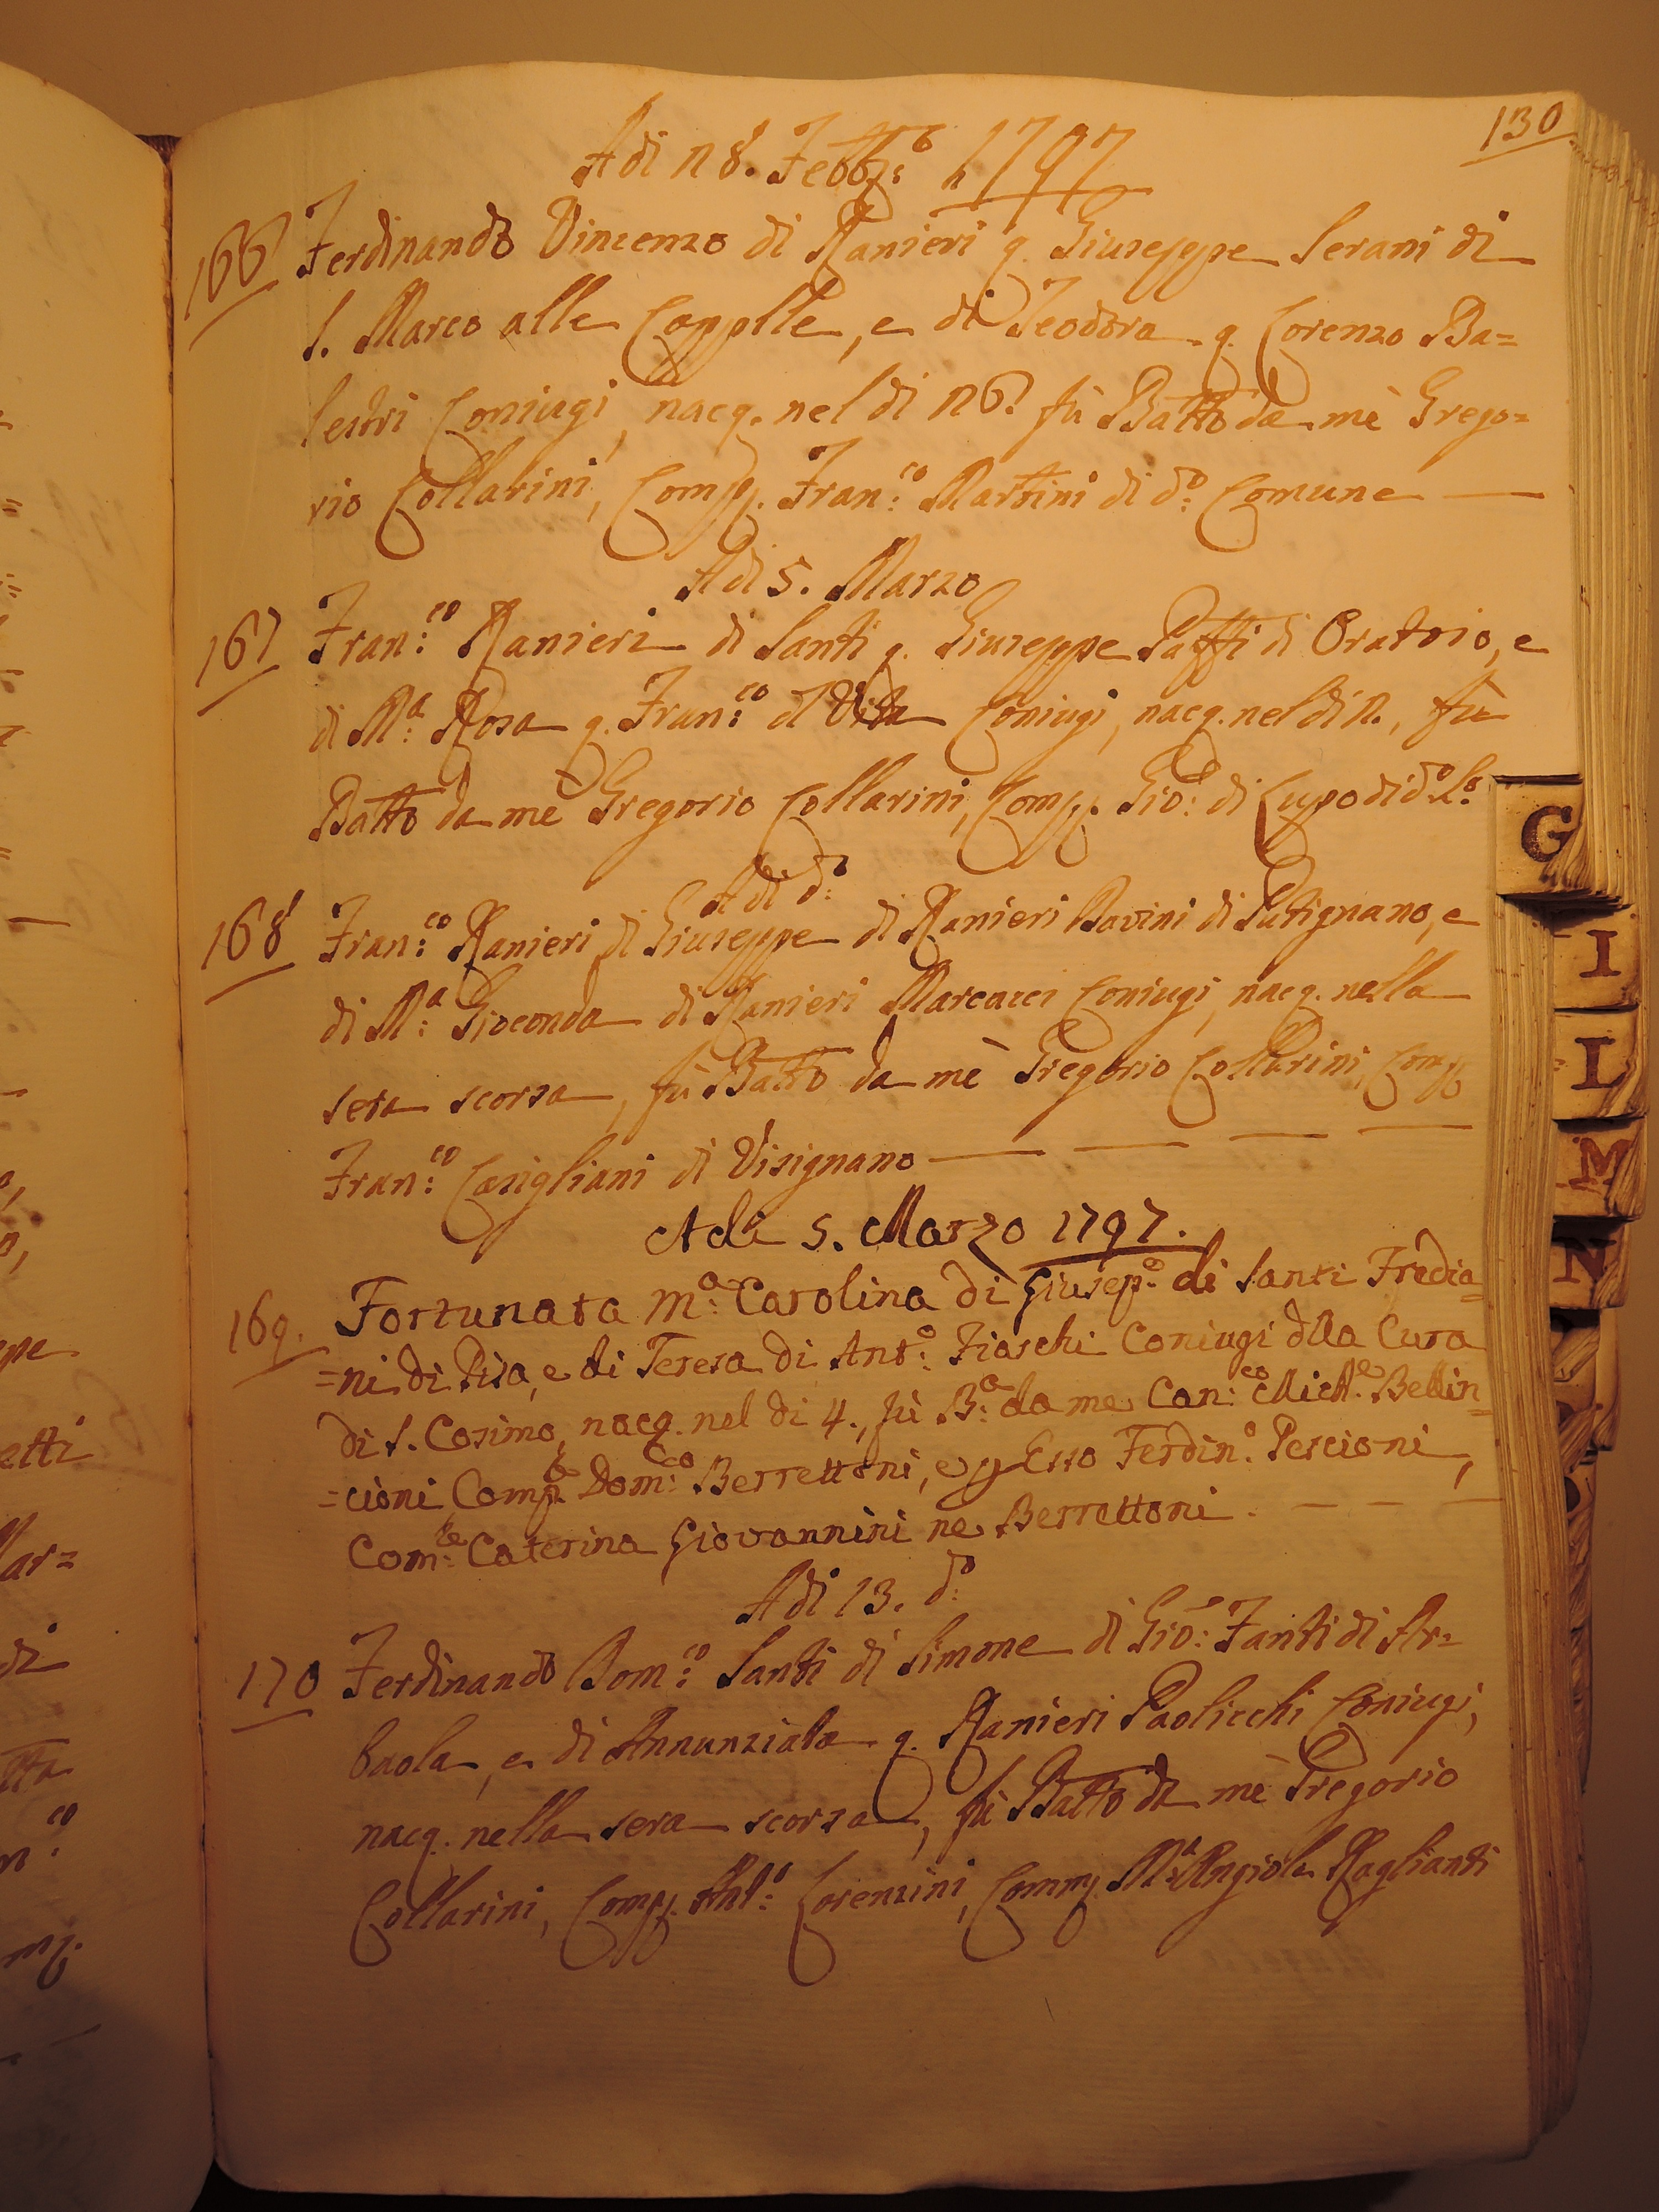 130
Adi 28. Febb:º 1797
166 Ferdinando Vincenzo di Ranieri q. Giuseppe Serani di
S. Marco alle Cappelle, e di Teodora q. Lorenzo Ba=
lestri Coniugi, nacq. nel di 26: fù Batt̅o da mè Grego=
rio Collarini, Comp. Fran:co Martini di dº: Comune
Adi 5. Marzo
167 Fran:co Ranieri di Santi q. Giuseppe Paffi di Oratoio, e
di Mª: Rosa q. Fran:co d Vita Coniugi, nacq. nel di 2., fù
Batt̅o da mè Gregorio Collarini, Comp. Gio: di Lupo di dº Lº
Adi dº:
168 Fran:co Ranieri di Giuseppe di Ranieri Bovini di Putignano, e
di Mª: Gioconda di Ranieri Marcacci Coniugi, nacq. nella
sera scorsa, fù Batt̅o da mè Gregorio Collarini, Comp
Fran:co Casigliani di Visignano
Adi 5. Marzo 1797.
169. Fortunata Mª: Carolina di Giusep:e di Santi Fredia=
=ni di Pisa, e di Teresa di Antº: Fiaschi Coniugi dlla Cura
di S. Cosimo, nacq. nel di 4., fù Bª: da me Can:co Mich:e Bellin=
=cioni Comp:e Dom:co Berrettoni, e p Esso Ferdin:º Pescioni,
Com:e Caterina Giovannini ne Berrettoni.
Adi 13. dº:
170 Ferdinando Dom:co Santi di Simone di Gio: Fanti di Ar=
baola, e di Annunziata q. Ranieri Paolicchi Coniugi,
nacq. nella sera scorsa, fù Batt̅o da mè Gregorio
Collarini, Comp. Antº: Lorenzini, Comm. Mª: Angiola Raglianti
G
I
L
M
N
etti
di